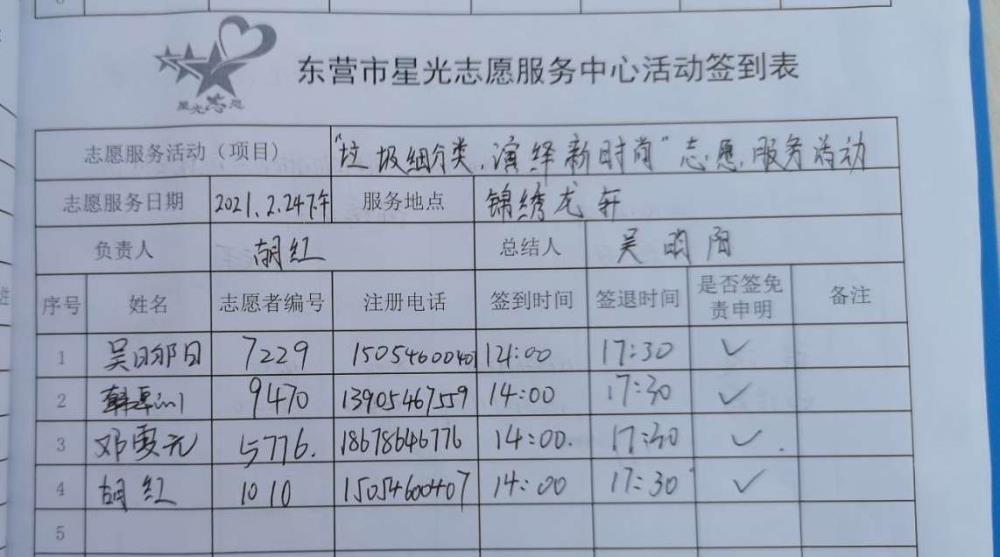 星光志愿
东营市星光志愿服务中心活动签到表
志愿服务活动（项目） "垃圾细分类，演绎新时尚"志愿服务活动
志愿服务日期 2021.2.24下午 服务地点 锦绣龙轩
负责人 胡红 总结人 吴昀阳
序号 姓名 志愿者编号 注册电话 签到时间 签退时间 是否签免责申明 备注
1 7229 17:30 ✓
2 9470 13905467559 14:00 17:30 ✓
3 邓雯元 5776. 18678646776 14:00. 17:30 ✓
4 胡红 1010 15054600407 14:00 17:30 ✓
5